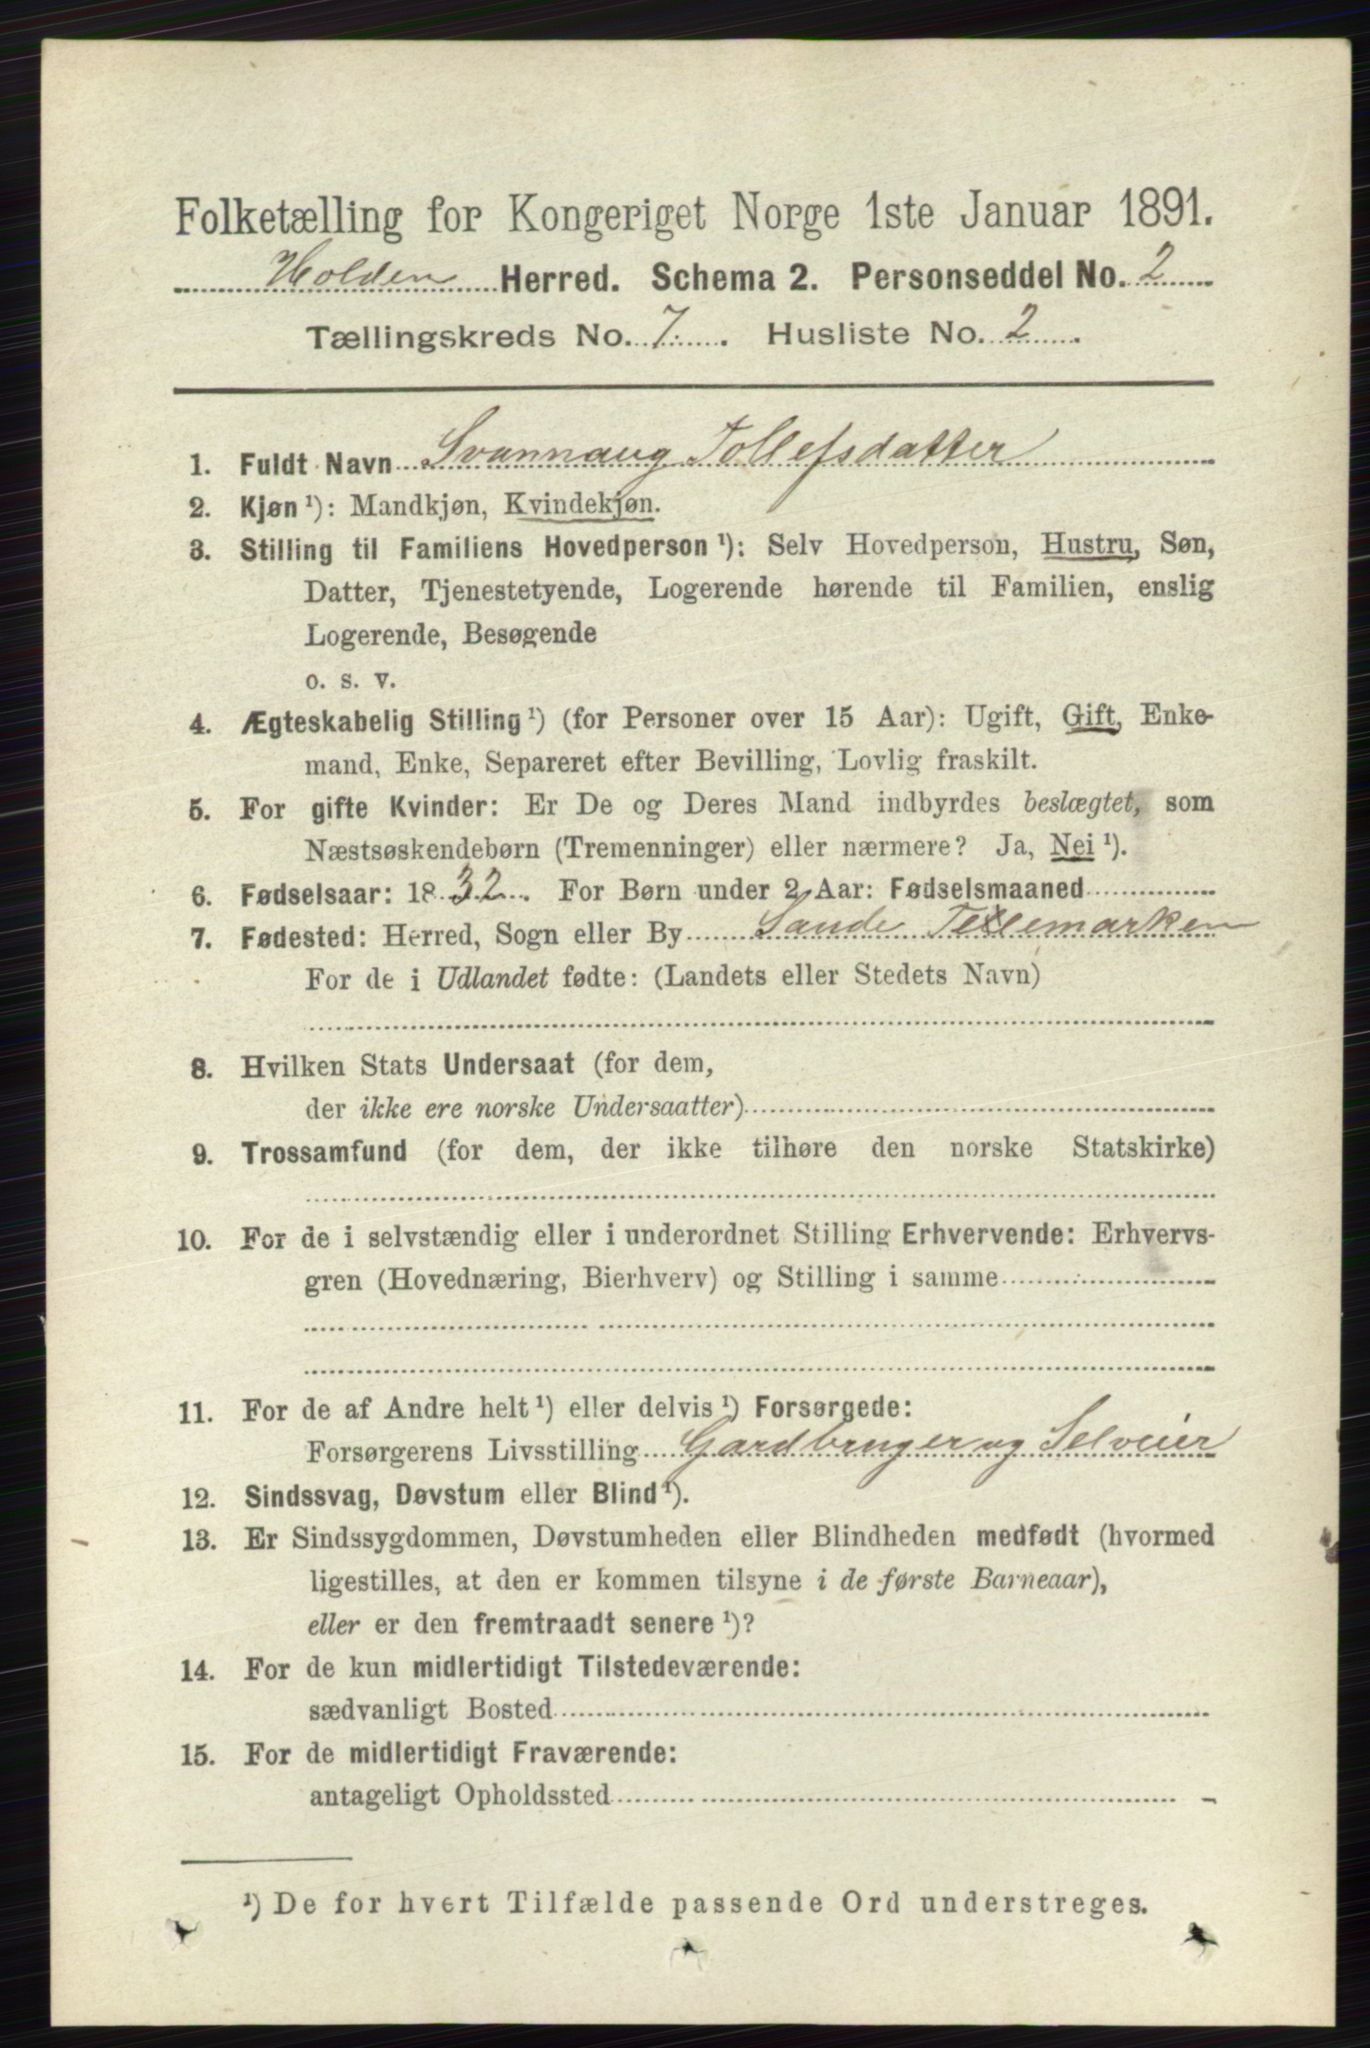 Folketælling for Kongeriget Norge 1ste Januar 1891.
Holden Herred. Schema 2. Personseddel No. 2
Tællingskreds No. 7. Husliste No. 2
1. Fuldt Navn Svannaug Tollefsdatter
2. Kjøn ¹): Mandkjøn, Kvindekjøn.
3. Stilling til Familiens Hovedperson ¹): Selv Hovedperson, Hustru, Søn,
Datter, Tjenestetyende, Logerende hørende til Familien, enslig
Logerende, Besøgende
o. s. v.
4. Ægteskabelig Stilling ¹) (for Personer over 15 Aar): Ugift, Gift, Enke-
mand, Enke, Separeret efter Bevilling, Lovlig fraskilt.
5. For gifte Kvinder: Er De og Deres Mand indbyrdes beslægtet, som
Næstsøskendebørn (Tremenninger) eller nærmere? Ja, Nei ¹).
6. Fødselsaar: 1832. For Børn under 2 Aar: Fødselsmaaned
7. Fødested: Herred, Sogn eller By Sande Tellemarken
For de i Udlandet fødte: (Landets eller Stedets Navn)
8. Hvilken Stats Undersaat (for dem,
der ikke ere norske Undersaatter)
9. Trossamfund (for dem, der ikke tilhøre den norske Statskirke)
10. For de i selvstændig eller i underordnet Stilling Erhvervende: Erhvervs-
gren (Hovednæring, Bierhverv) og Stilling i samme
11. For de af Andre helt ¹) eller delvis ¹) Forsørgede:
Forsørgerens Livsstilling Gardbruger og Selveier
12. Sindssvag, Døvstum eller Blind ¹).
13. Er Sindssygdommen, Døvstumheden eller Blindheden medfødt (hvormed
ligestilles, at den er kommen tilsyne i de første Barneaar),
eller er den fremtraadt senere ¹)?
14. For de kun midlertidigt Tilstedeværende:
sædvanligt Bosted
15. For de midlertidigt Fraværende:
antageligt Opholdssted
¹) De for hvert Tilfælde passende Ord understreges.